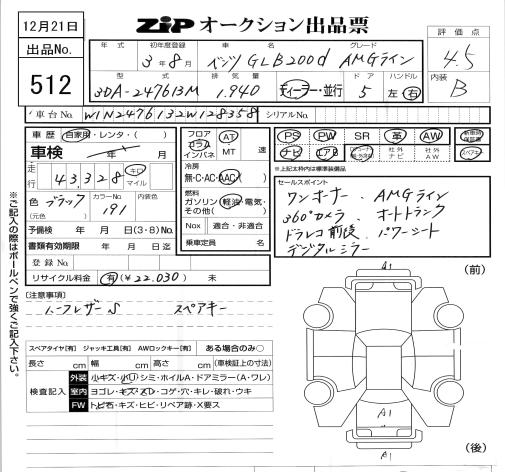 12月21日
ZIP オークション出品票
出品No.
512
年式
初年度登録
3年8月
車名
ベンツ GLB200d
グレード
AMGライン
評価点
4.5
型式
3DA-247613M
排気量
1,940
ディーラー・並行
ドア
5
ハンドル
左 右
内装
B
車台No.
W1N2476132W128358
シリアルNo.
車歴 自家用・レンタ・( )
車検 年 月
走行
43,328
キロ
マイル
色
(元色)
ブラック
カラーNo.
191
内装色
予備検 年 月 日(3・8)No.
書類有効期限 年 月 日迄
登録No.
リサイクル料金 有(¥22,030) 無
フロア
コラム
インパネ
AT
MT
速
冷房
無・C・AC・AAC
燃料
ガソリン・軽油・電気・
その他( )
Nox 適合・非適合
乗車定員 名
PS PW SR 革 AW
新車時保証書
ナビ エアB
社外ナビ
社外AW
スペアキー
※上記太枠内は標準装備品
セールスポイント
ワンオーナー、AMGライン
360°カメラ オートトランク
ドラレコ前後 パワーシート
デジタルミラー
※ご記入の際はボールペンで強くご記入下さい。
[注意事項]
ハーフレザーS スペアキー
スペアタイヤ[有] ジャッキ工具[有] AWロックキー[有] ある場合のみ○
長さ cm 幅 cm 高さ cm (車検証上の寸法)
検査記入
外装 小キズ・小凹・シミ・ホイルA・ドアミラー(A・ワレ)
室内 ヨゴレ・キズ・スレ・コゲ・穴・キレ・破れ・ウキ
FW トビ石・キズ・ヒビ・リペア跡・X要ス
A1
(前)
A1
A1
(後)